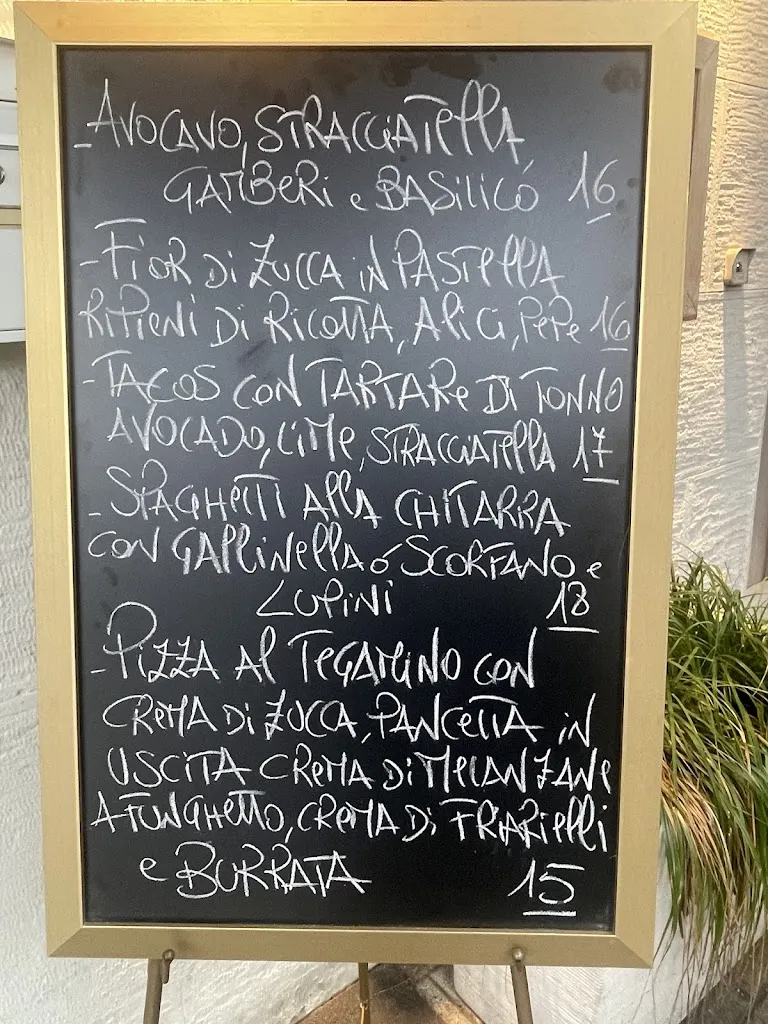 - AVOCAVO, STRACCIATELLA,
GAMBERI e BASILICO 16
- FIOR DI ZUCCA IN PASTELLA
RIPIENI DI RICOTTA, ALICI, PEPE 16
- TACOS CON TARTARE DI TONNO
AVOCADO, LIME, STRACCIATELLA 17
- SPAGHETTI ALLA CHITARRA
CON GALLINELLA ó SCORFANO e
LUPINI 18
- PIZZA AL TEGAMINO CON
CREMA DI ZUCCA, PANCETTA IN
USCITA CREMA DI MELANZANE
A FUNGHETTO, CREMA DI FRIARIELLI
e BURRATA 15